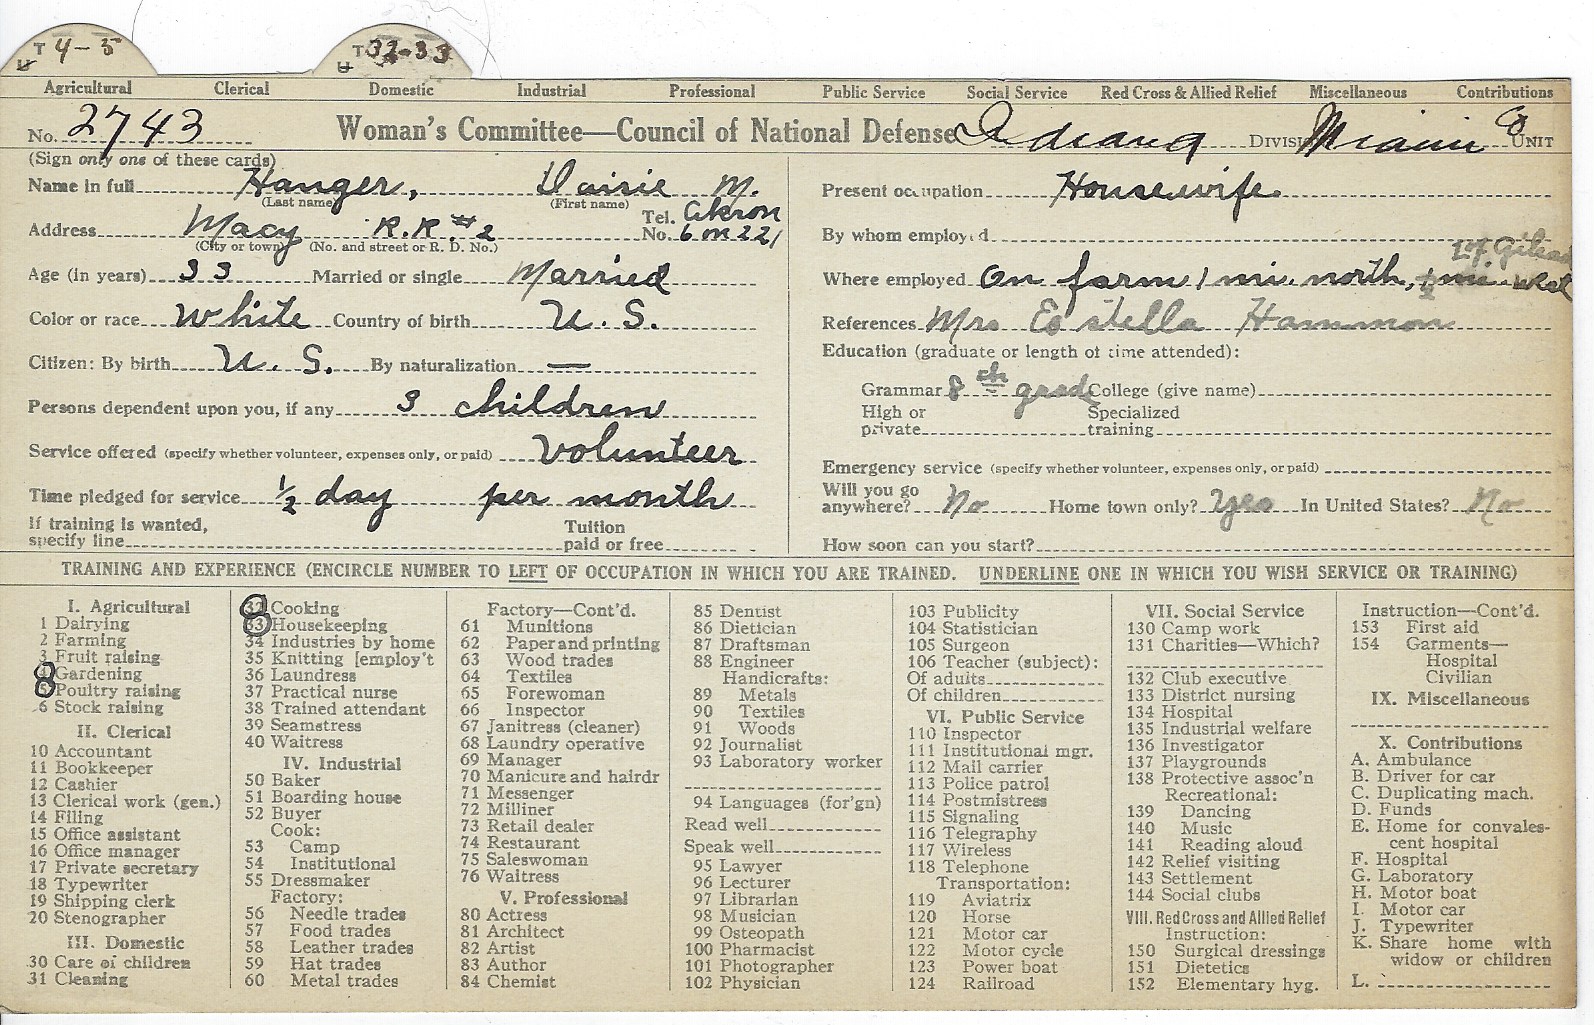 T 4-5 T 32-33
U U
Agricultural Clerical Domestic Industrial Professional Public Service Social Service Red Cross & Allied Relief Miscellaneous Contributions
No. 2743 Woman's Committee—Council of National Defense Indiana DIVISION Miami Co UNIT
(Sign only one of these cards)
Name in full Hanger, Daisie M.
(Last name) (First name)
Address Macy R.R #2 Tel. No. Akron 6 on 221
(City or town) (No. and street or R. D. No.)
Age (in years) 33 Married or single Married
Color or race White Country of birth U. S.
Citizen: By birth U. S. By naturalization —
Persons dependent upon you, if any 3 children
Service offered (specify whether volunteer, expenses only, or paid) Volunteer
Time pledged for service ½ day per month
If training is wanted, specify line Tuition paid or free
Present occupation Housewife
By whom employed
Where employed On farm 1 mi. north, ½ mi. west of Gilead
References Mrs Estella Hammon
Education (graduate or length of time attended):
Grammar 8th grade College (give name)
High or private Specialized training
Emergency service (specify whether volunteer, expenses only, or paid)
Will you go anywhere? No Home town only? Yes In United States? No
How soon can you start?
TRAINING AND EXPERIENCE (ENCIRCLE NUMBER TO LEFT OF OCCUPATION IN WHICH YOU ARE TRAINED. UNDERLINE ONE IN WHICH YOU WISH SERVICE OR TRAINING)
I. Agricultural
1 Dairying
2 Farming
3 Fruit raising
4 Gardening
5 Poultry raising
6 Stock raising
II. Clerical
10 Accountant
11 Bookkeeper
12 Cashier
13 Clerical work (gen.)
14 Filing
15 Office assistant
16 Office manager
17 Private secretary
18 Typewriter
19 Shipping clerk
20 Stenographer
III. Domestic
30 Care of children
31 Cleaning
32 Cooking
33 Housekeeping
34 Industries by home
35 Knitting [employ't
36 Laundress
37 Practical nurse
38 Trained attendant
39 Seamstress
40 Waitress
IV. Industrial
50 Baker
51 Boarding house
52 Buyer
Cook:
53 Camp
54 Institutional
55 Dressmaker
Factory:
56 Needle trades
57 Food trades
58 Leather trades
59 Hat trades
60 Metal trades
Factory—Cont'd.
61 Munitions
62 Paper and printing
63 Wood trades
64 Textiles
65 Forewoman
66 Inspector
67 Janitress (cleaner)
68 Laundry operative
69 Manager
70 Manicure and hairdr
71 Messenger
72 Milliner
73 Retail dealer
74 Restaurant
75 Saleswoman
76 Waitress
V. Professional
80 Actress
81 Architect
82 Artist
83 Author
84 Chemist
85 Dentist
86 Dietician
87 Draftsman
88 Engineer
Handicrafts:
89 Metals
90 Textiles
91 Woods
92 Journalist
93 Laboratory worker
94 Languages (for'gn)
Read well
Speak well
95 Lawyer
96 Lecturer
97 Librarian
98 Musician
99 Osteopath
100 Pharmacist
101 Photographer
102 Physician
103 Publicity
104 Statistician
105 Surgeon
106 Teacher (subject):
Of adults
Of children
VI. Public Service
110 Inspector
111 Institutional mgr.
112 Mail carrier
113 Police patrol
114 Postmistress
115 Signaling
116 Telegraphy
117 Wireless
118 Telephone
Transportation:
119 Aviatrix
120 Horse
121 Motor car
122 Motor cycle
123 Power boat
124 Railroad
VII. Social Service
130 Camp work
131 Charities—Which?
132 Club executive
133 District nursing
134 Hospital
135 Industrial welfare
136 Investigator
137 Playgrounds
138 Protective assoc'n
Recreational:
139 Dancing
140 Music
141 Reading aloud
142 Relief visiting
143 Settlement
144 Social clubs
VIII. Red Cross and Allied Relief
Instruction:
150 Surgical dressings
151 Dietetics
152 Elementary hyg.
Instruction—Cont'd.
153 First aid
154 Garments—
Hospital
Civilian
IX. Miscellaneous
X. Contributions
A. Ambulance
B. Driver for car
C. Duplicating mach.
D. Funds
E. Home for convales-
cent hospital
F. Hospital
G. Laboratory
H. Motor boat
I. Motor car
J. Typewriter
K. Share home with
widow or children
L.